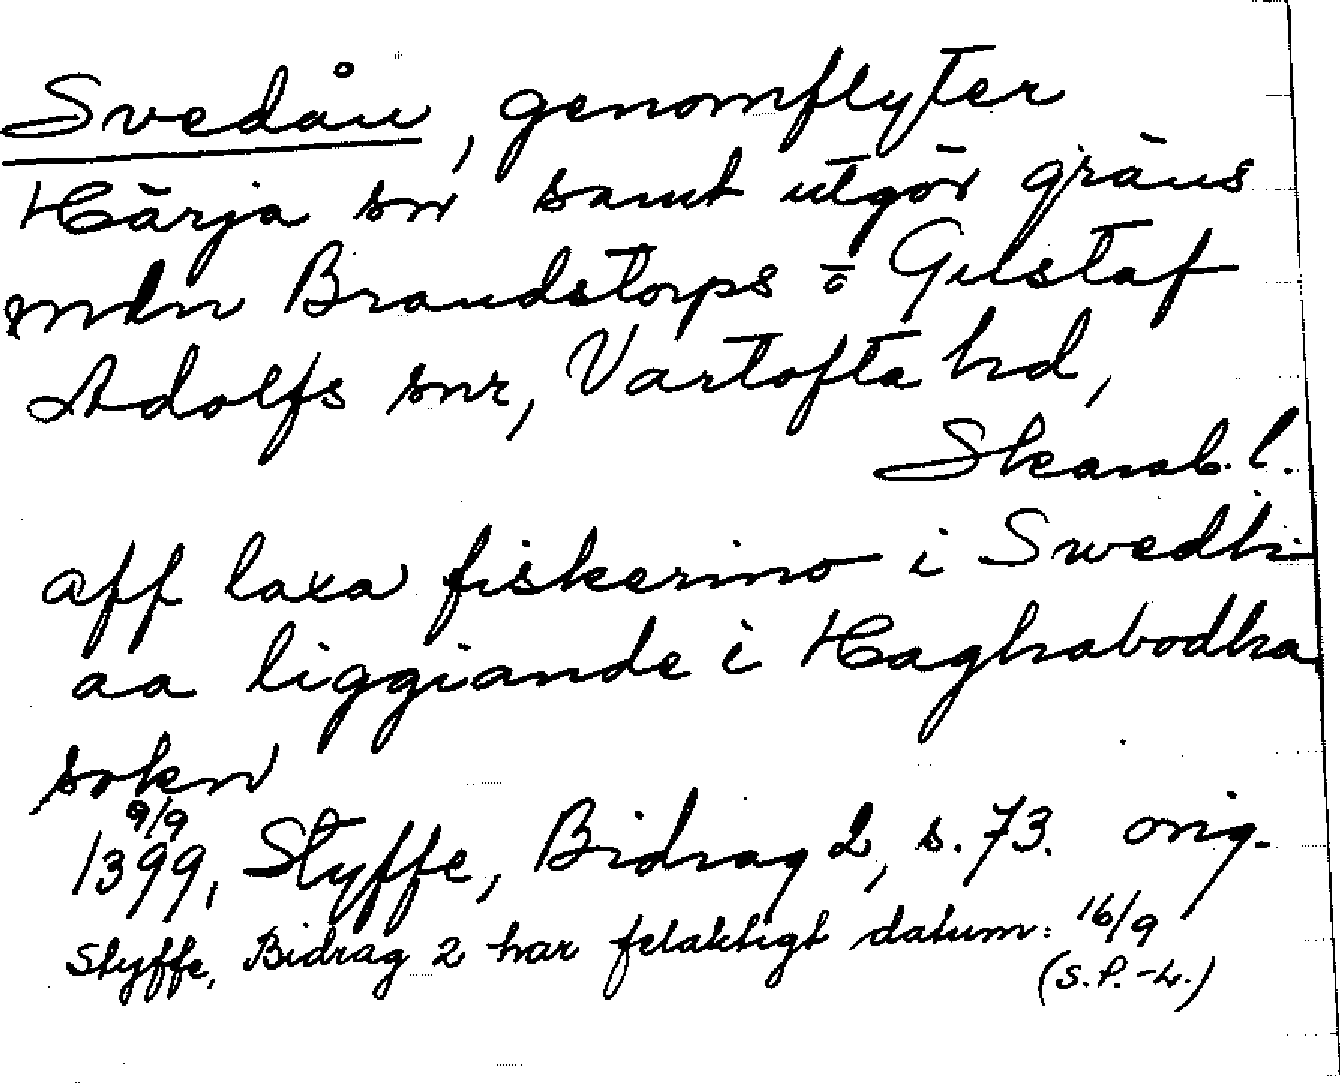 Svedån, genomflyter
Härja sn samt utgör gräns
mln Brandstorps o Gustaf
Adolfs snr, Vartofta hd,
Skarab. l.
aff laxa fiskerino i Swedh
aa liggiande i Haghabodha
sokn
9/9
1399, Styffe, Bidrag 2, s. 73. orig.
Styffe, Bidrag 2 har felaktigt datum: 16/9
(S.P.-L.)